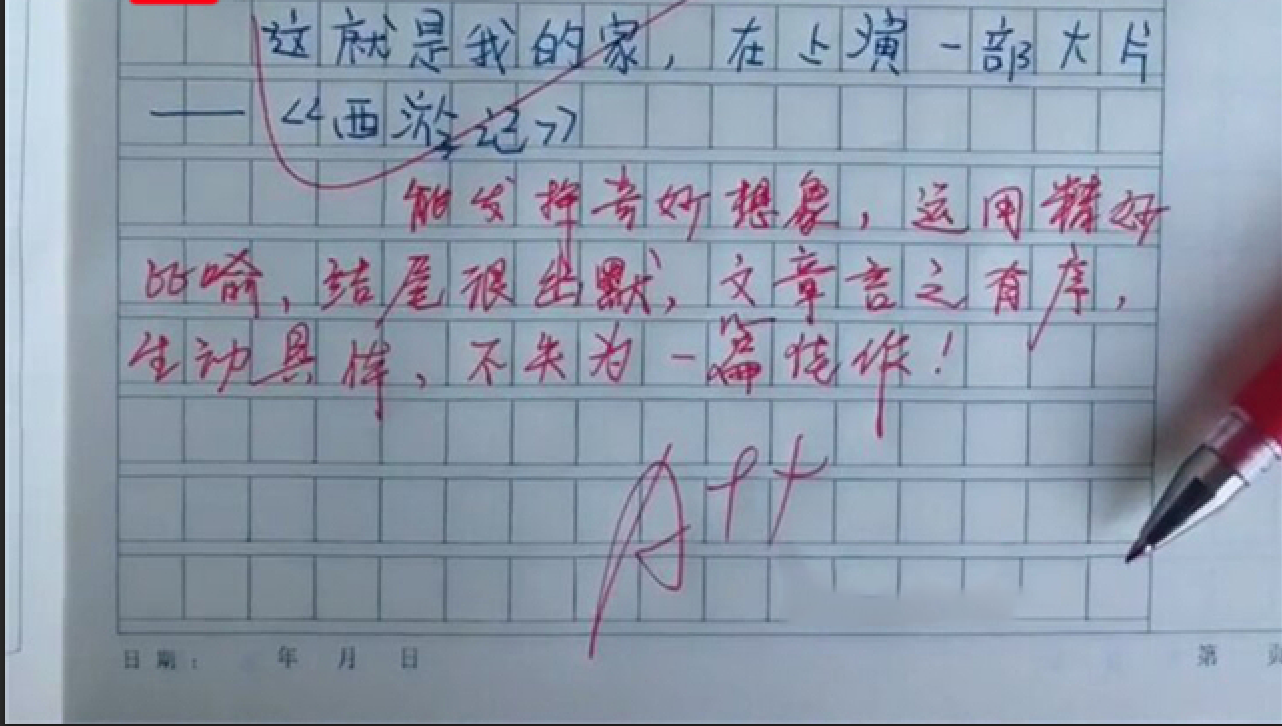 这就是我的家，在上演一部大片
——《西游记》
能发挥奇妙想象，运用精妙
比喻，结尾很幽默，文章言之有序，
生动具体，不失为一篇佳作！
A++
日期： 年 月 日
第 页